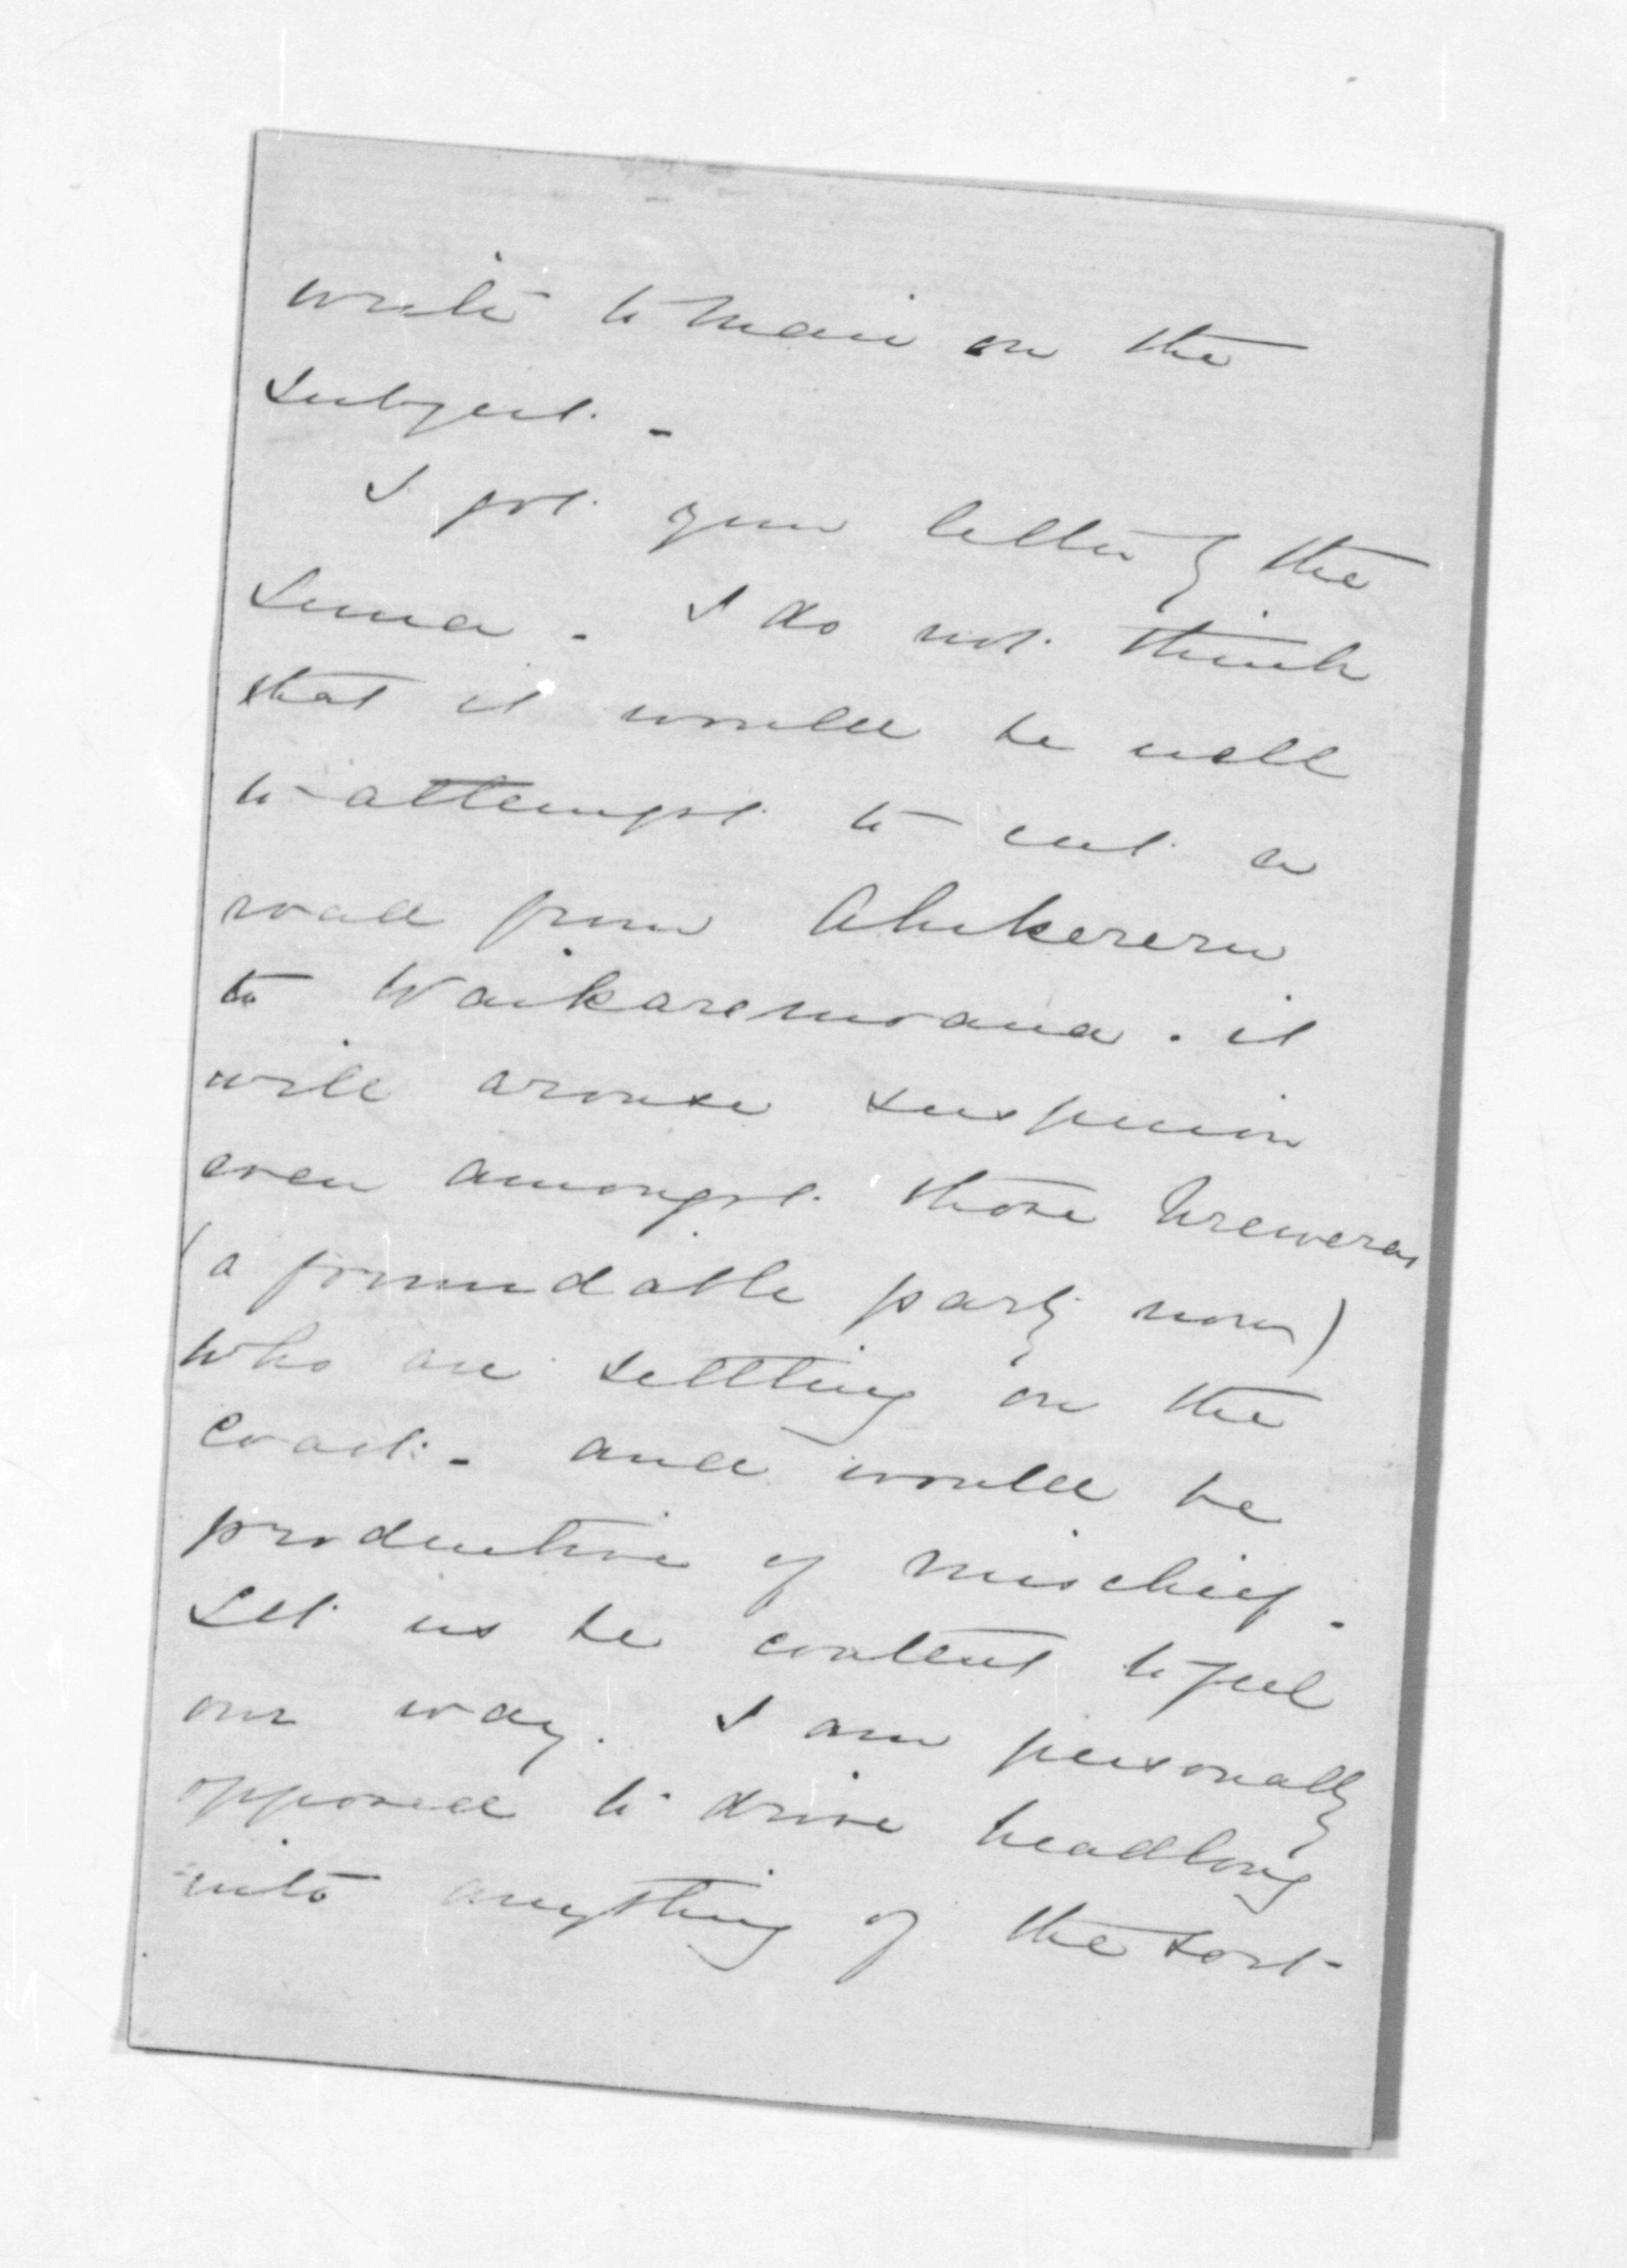 write to Mair on the
subject. -
I got your letter by the
Luna. I do not think
that it would be well
to attempt to cut a
road from Ahikereru
to Waikaremoana. it
will arouse suspicion
even amongst those Ureweras
(a formidable party now)
who are settling on the
coast. - and would be
productive of mischief.
Let us be content to feel
our way. I am personally
opposed to drive headlong
into anything of the sort -